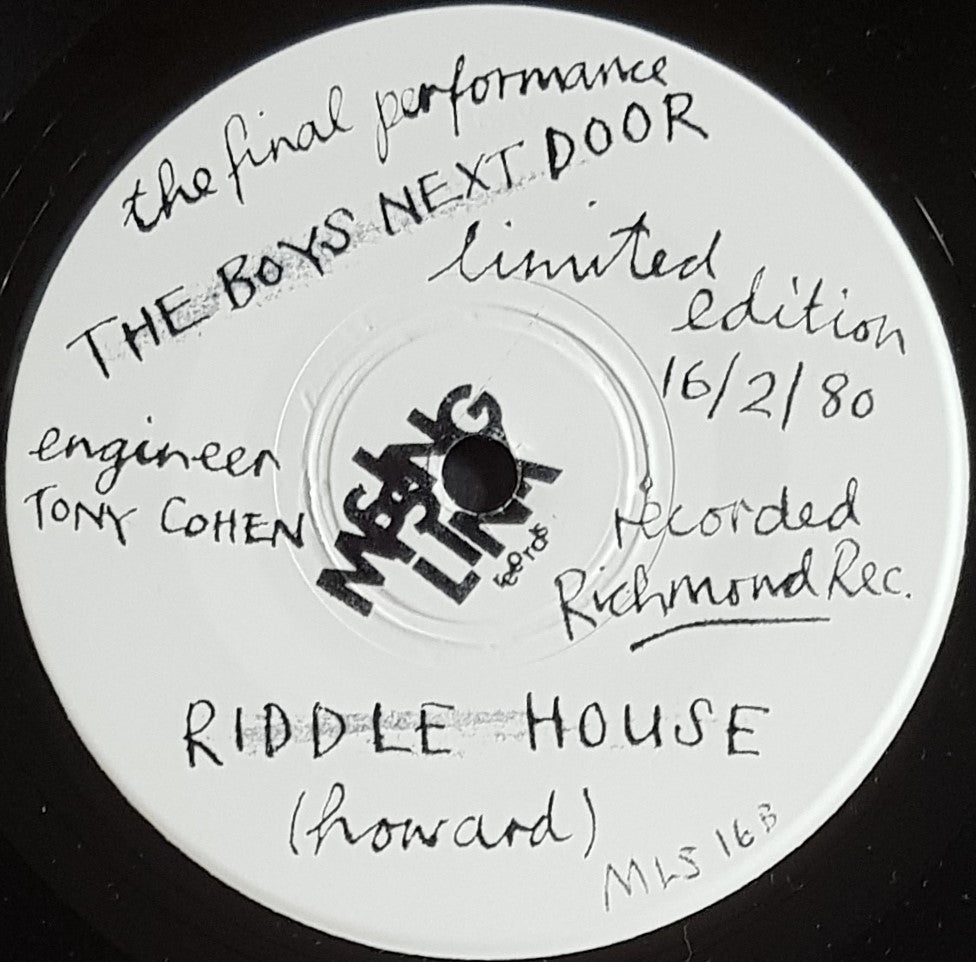 the final performance
THE BOYS NEXT DOOR
limited
edition
16/2/80
engineer
TONY COHEN
MISSING
LINK
records
recorded
Richmond Rec.
RIDDLE HOUSE
(howard)
MLS 16B